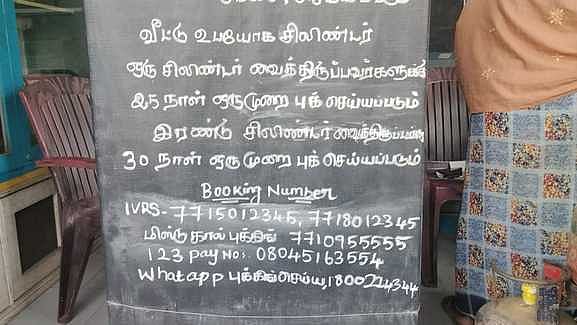 வீட்டு உபயோக சிலிண்டர்
ஒரு சிலிண்டர் வைத்திருப்பவர்களுக்கு
25 நாள் ஒருமுறை புக் செய்யப்படும்
இரண்டு சிலிண்டர்
30 நாள் ஒருமுறை புக் செய்யப்படும்
Booking Number
IVRS - 7715012345, 7718012345
மிஸ்டு கால் புக்கிங் 7710955555
123 Pay No:. 08045163554
Whatapp புக்கிங் செய்ய, 1800224344